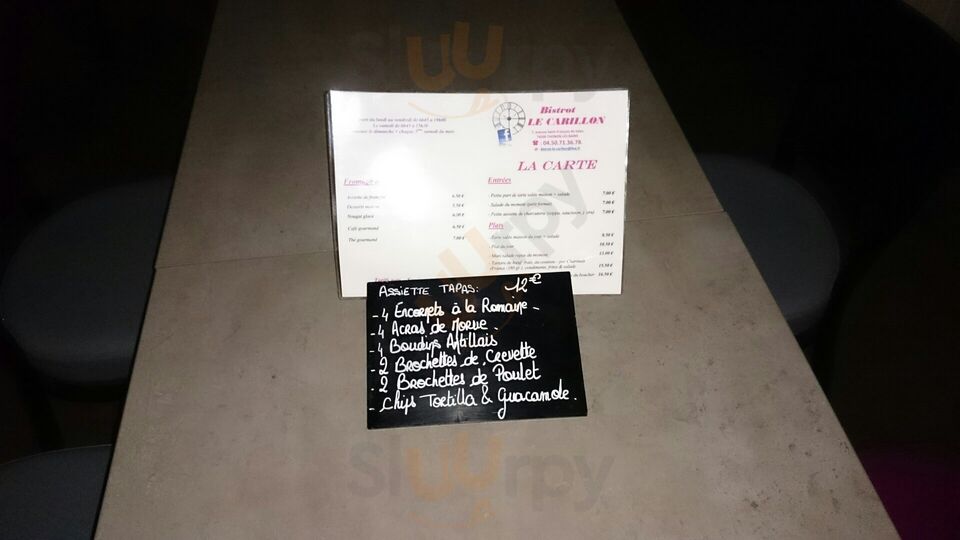 Bistrot
LE CARILLON
04.50.71.36.78
LA CARTE
Entrées
- Petite part de tarte salée maison + salade 7.00 €
- Salade du moment (petit format) 7.00 €
- Petite assiette de charcuterie 7.00 €
Plats
- Tarte salée maison du jour + salade 8.50 €
- Plat du jour 10.50 €
- Maxi salade repas du moment 13.00 €
- Tartare de bœuf
(France -180 gr.), condiments, frites & salade 15.50 €
du boucher 16.50 €
Assiette de fromage 6.50 €
Desserts maison 5.50 €
Nougat glacé 6.00 €
Café gourmand 6.50 €
Thé gourmand 7.00 €
ASSIETTE TAPAS: 12€
- 4 Encornets à la Romaine
- 4 Acras de Morue
- 4 Boudins Antillais
- 2 Brochettes de Crevette
- 2 Brochettes de Poulet
- Chips Tortilla & Guacamole.
sluurpy
sluurpy
sluurpy